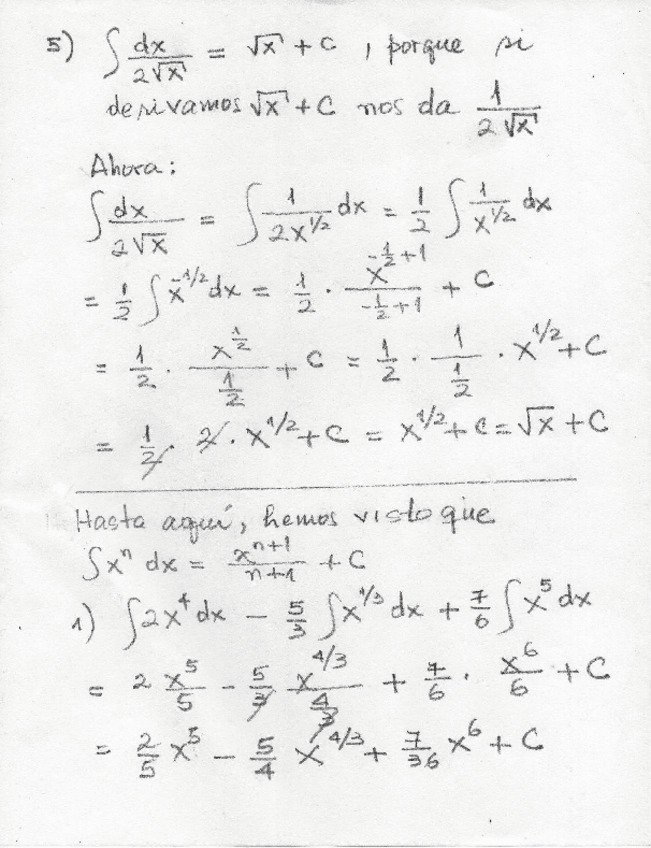 5) ∫ dx/(2√x) = √x + C , porque si
derivamos √x + C nos da 1/(2√x)
Ahora:
∫ dx/(2√x) = ∫ 1/(2x^(1/2)) dx = 1/2 ∫ 1/(x^(1/2)) dx
= 1/2 ∫ x^(-1/2) dx = 1/2 · x^(-1/2+1)/(-1/2+1) + C
= 1/2 · x^(1/2)/(1/2) + C = 1/2 · 1/(1/2) · x^(1/2) + C
= 1/2 · 2 · x^(1/2) + C = x^(1/2) + C = √x + C
Hasta aquí, hemos visto que
∫ x^n dx = x^(n+1)/(n+1) + C
1) ∫ 2x^4 dx - 5/3 ∫ x^(1/3) dx + 7/6 ∫ x^5 dx
= 2 x^5/5 - 5/3 x^(4/3)/(4/3) + 7/6 · x^6/6 + C
= 2/5 x^5 - 5/4 x^(4/3) + 7/36 x^6 + C